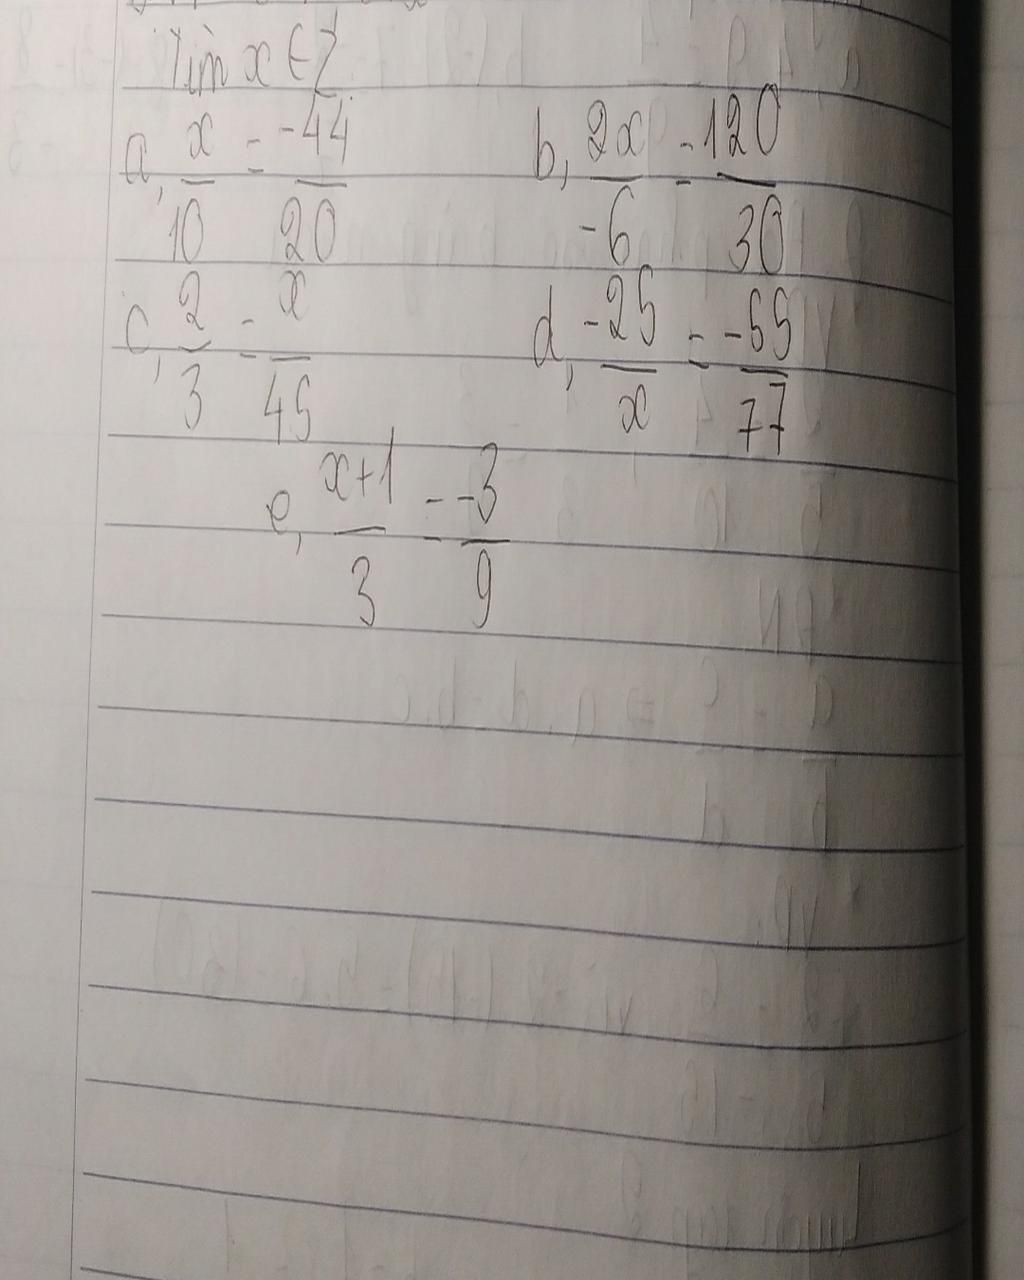 Tìm x ∈ Z
a, x/10 = -44/20 b, 2x/-6 = 120/30
c, 2/3 = x/45 d, -25/x = -55/77
e, x+1/3 = -3/9